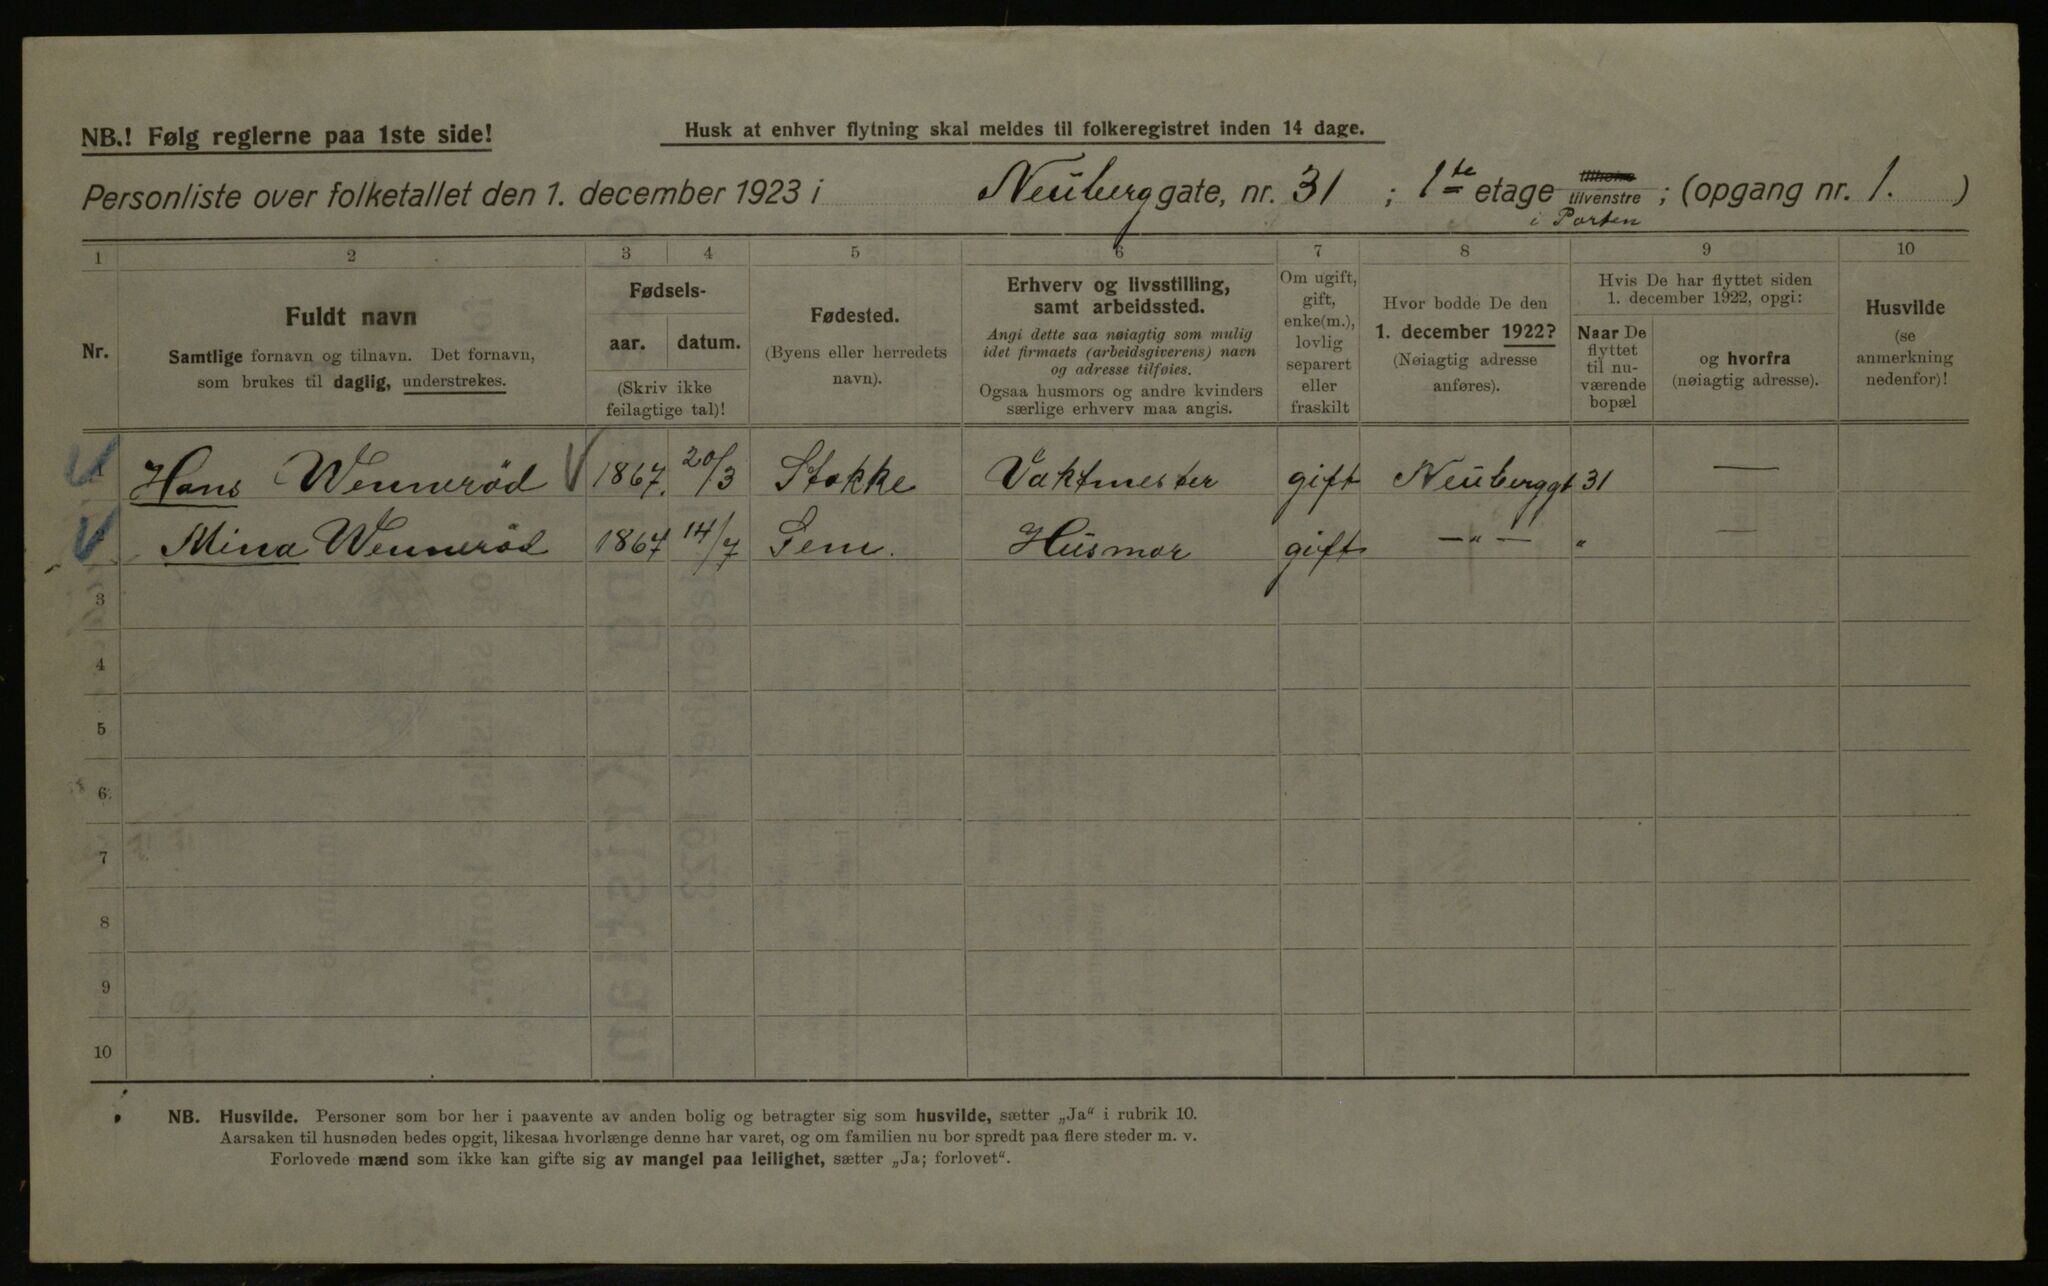 NB.! Følg reglerne paa 1ste side!
Husk at enhver flytning skal meldes til folkeregistret inden 14 dage.
Personliste over folketallet den 1. december 1923 i Neuberggate, nr. 31 ; 1te etage tilhøire tilvenstre ; (opgang nr. 1. )
i Porten
1 2 3 4 5 6 7 8 9 10
Nr.
Fuldt navn
Samtlige fornavn og tilnavn. Det fornavn,
som brukes til daglig, understrekes.
Fødsels-
aar. datum.
(Skriv ikke
feilagtige tal)!
Fødested.
(Byens eller herredets
navn).
Erhverv og livsstilling,
samt arbeidssted.
Angi dette saa nøiagtig som mulig
idet firmaets (arbeidsgiverens) navn
og adresse tilføies.
Ogsaa husmors og andre kvinders
særlige erhverv maa angis.
Om ugift,
gift,
enke(m.),
lovlig
separert
eller
fraskilt
Hvor bodde De den
1. december 1922?
(Nøiagtig adresse
anføres).
Hvis De har flyttet siden
1. december 1922, opgi:
Naar De
flyttet
til nu-
værende
bopæl
og hvorfra
(nøiagtig adresse).
Husvilde
(se
anmerkning
nedenfor)!
Hans Wennerød 1867. 20/3 Stokke Vaktmester gift Neuberggt 31 —
Mina Wennerød 1867 14/7 Sem. Husmor gift —"— " —
3
4
5
6
7
8
9
10
NB. Husvilde. Personer som bor her i paavente av anden bolig og betragter sig som husvilde, sætter „Ja“ i rubrik 10.
Aarsaken til husnøden bedes opgit, likesaa hvorlænge denne har varet, og om familien nu bor spredt paa flere steder m. v.
Forlovede mænd som ikke kan gifte sig av mangel paa leilighet, sætter „Ja; forlovet“.